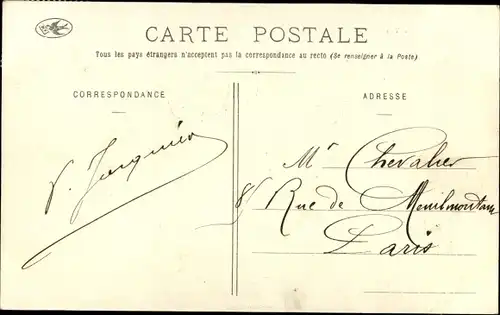 CARTE POSTALE
Tous les pays étrangers n'acceptent pas la correspondance au recto (Se renseigner à la Poste)
CORRESPONDANCE
ADRESSE
Mr Chevalier
Rue de Menilmontant
Paris